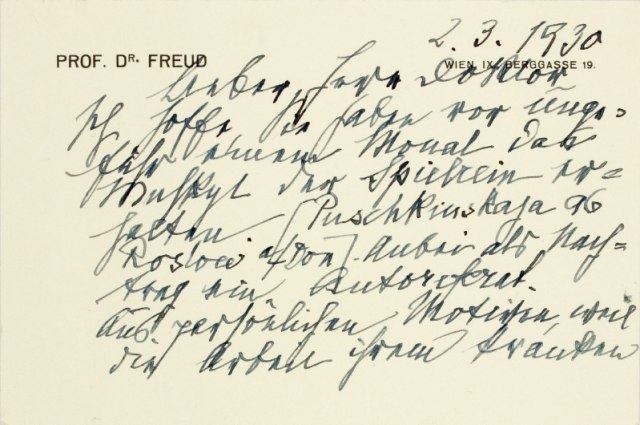 2. 3. 1930
PROF. DR. FREUD
WIEN, IX., BERGGASSE 19.
Lieber Herr Doktor
Ich hoffe, Sie haben vor unge-
fähr einem Monat das
Mskpt der Spielrein er=
halten [Puschkinskaja 96
Rostow a/Don]. Anbei als Nach=
trag ein Autoreferat.
Aus persönlichen Motiven, weil
die Arbeit ihrem kranken